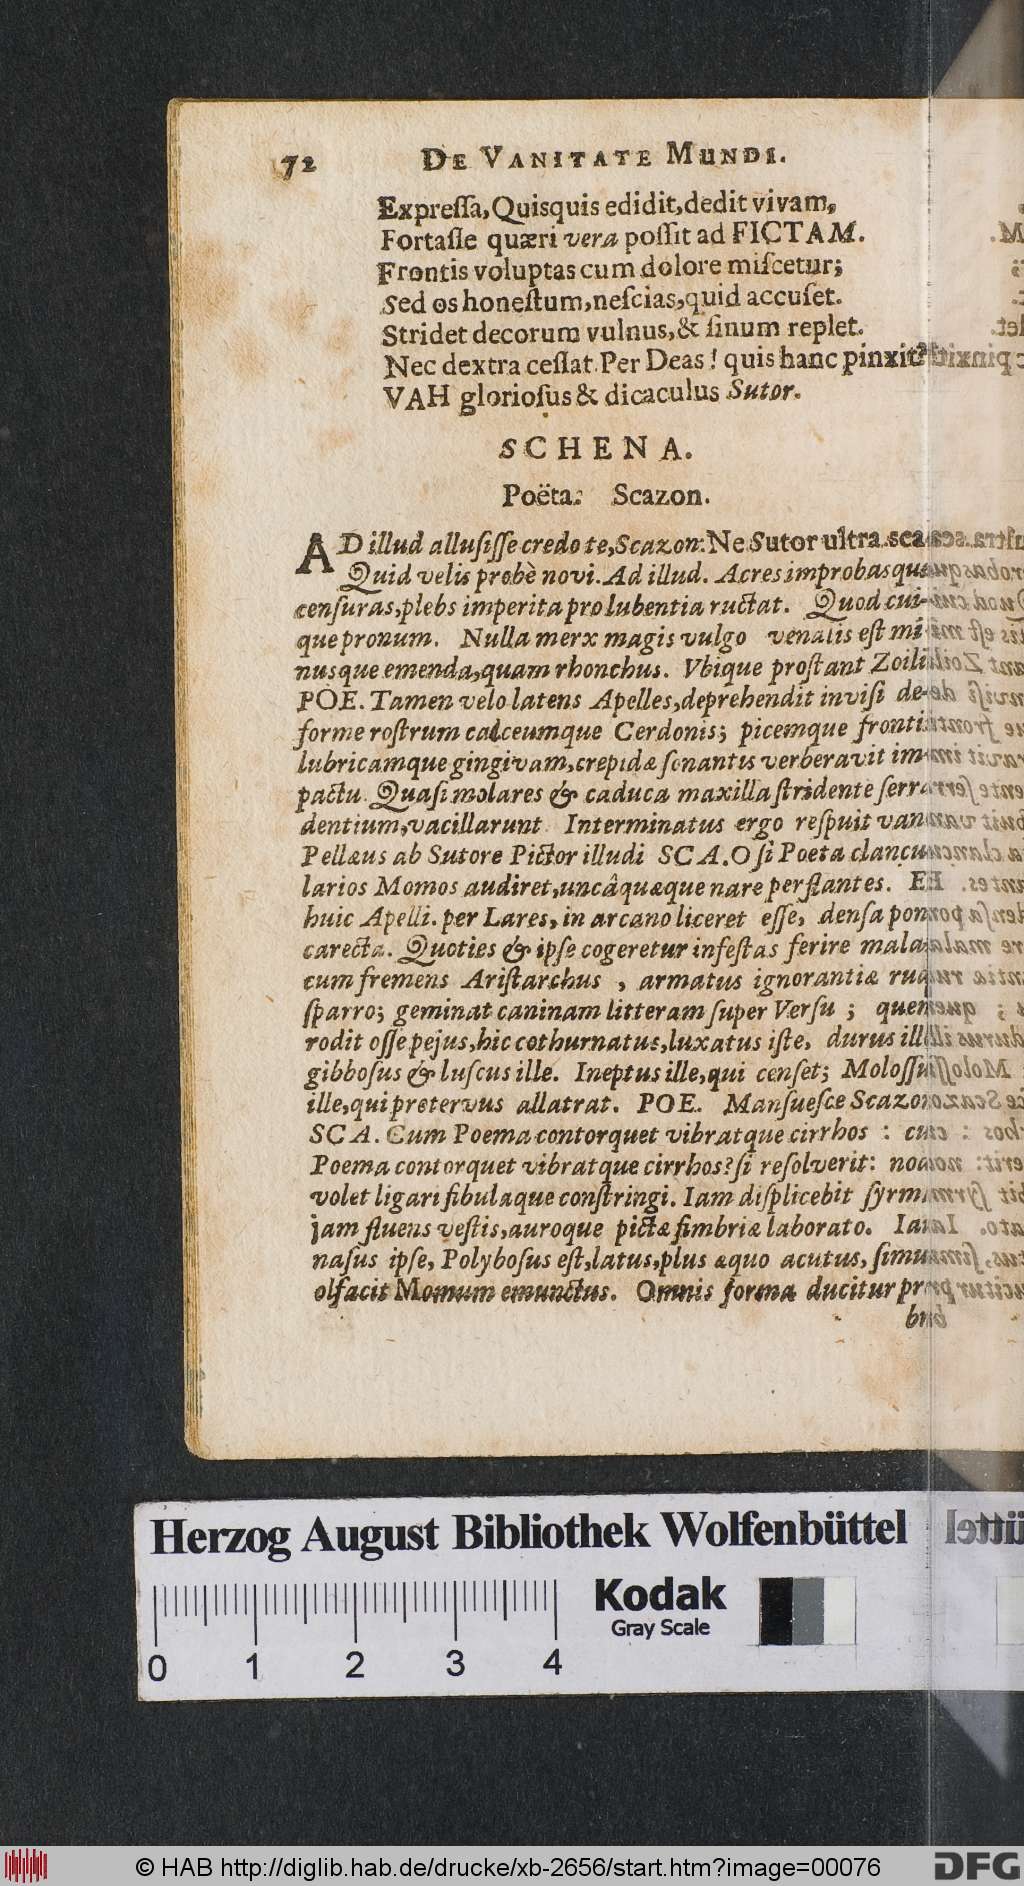 72 DE VANITATE MUNDI.
Expreſſa, Quisquis edidit, dedit vivam,
Fortaſſe quæri vera poſſit ad FICTAM.
Frontis voluptas cum dolore miſcetur;
Sed os honeſtum, neſcias, quid accuſet.
Stridet decorum vulnus, & ſinum replet.
Nec dextra ceſſat. Per Deas! quis hanc pinxit?
VAH glorioſus & dicaculus Sutor.
SCHENA.
Poëta. Scazon.
AD illud alluſiſſe credo te, Scazon: Ne Sutor ultra sca
Quid velis probè novi. Ad illud. Acres improbasque
cenſuras, plebs imperita pro lubentia ructat. Quod cui-
que pronum. Nulla merx magis vulgo venalis eſt mi-
nusque emenda, quam rhonchus. Vbique proſtant Zoili
POE. Tamen velo latens Apelles, deprehendit inviſi de-
forme roſtrum calceumque Cerdonis; picemque fronti
lubricamque gingivam, crepidæ ſonantis verberavit im-
pactu. Quaſi molares & caduca maxilla ſtridente ſerra
dentium, vacillarunt. Interminatus ergo reſpuit van
Pellæus ab Sutore Pictor illudi SCA. O ſi Poeta clancu
larios Momos audiret, uncâ quæque nare perflantes. EH
huic Apelli. per Lares, in arcano liceret eſſe, denſa pon
carecta. Quoties & ipſe cogeretur infeſtas ferire mala
cum fremens Ariſtarchus, armatus ignorantiæ ru
ſparro; geminat caninam litteram ſuper Verſu; quem
rodit oſſe pejus, hic cothurnatus, luxatus iſte, durus ill
gibboſus & luſcus ille. Ineptus ille, qui cenſet; Moloſſu
ille, qui protervus allatrat. POE. Manſueſce Scazo
SCA. Cum Poema contorquet vibratque cirrhos : cu
Poema contorquet vibratque cirrhos? ſi reſolverit: no
volet ligari fibulaque conſtringi. Iam diſplicebit ſyrm
jam fluens veſtis, auroque pictæ fimbriæ laborato. Ia
naſus ipſe, Polyboſus eſt, latus, plus æquo acutus, ſimu
olfacit Momum emunctus. Omnis forma ducitur pr
b
Herzog August Bibliothek Wolfenbüttel
Kodak
Gray Scale
0 1 2 3 4
© HAB http://diglib.hab.de/drucke/xb-2656/start.htm?image=00076
DFG